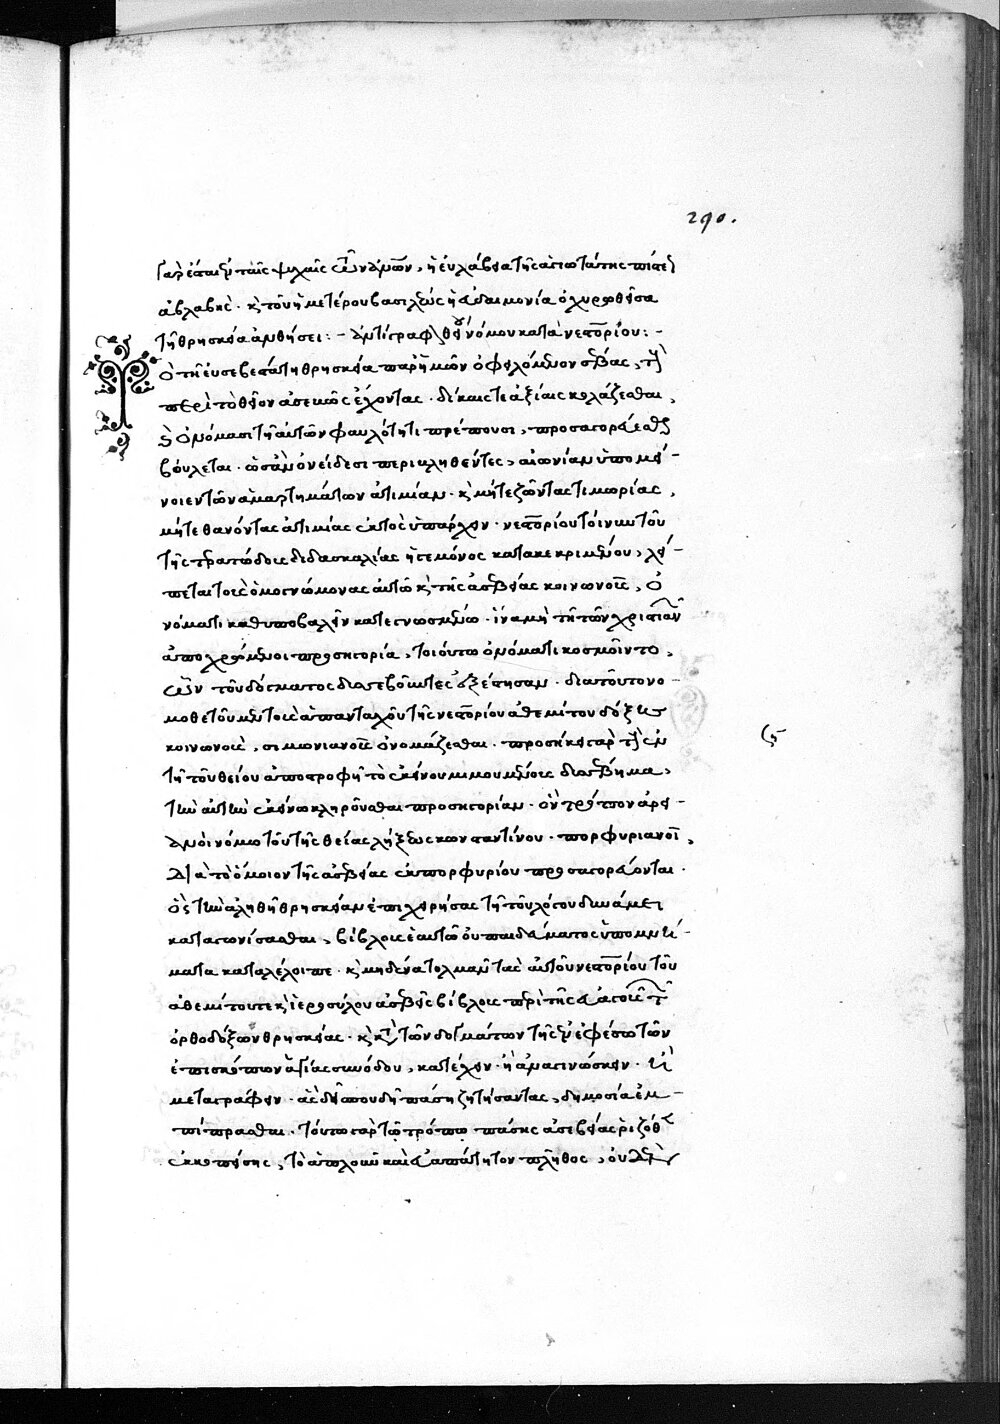 290.
γὰρ ἐπὰν ἐν ταῖς ψυχαῖς συνδράμων, ἡ εὐλάβεια τῆς ἁγιωτάτης πίστεως
ἀβλαβής. καὶ τοῦ ἡμετέρου βασιλέως ἡ εὐδαιμονία ὀχυρωθεῖσα
τῇ θρησκεία ἀνθήσει: – Ἀντίγραφον θείου νόμου κατὰ νεστορίου: –
Τὸ τῇ εὐσεβεστάτη θρησκεία παρ' ἡμῶν ὀφειλόμενον σέβας, τοὺς
περὶ τὸ θεῖον ἀσεμνῶς ἔχοντας. δίκαις τὲ ἀξίαις κολάζεσθαι,
καὶ ὀνόμασι τῇ αὐτῶν φαυλότητι πρέπουσι, προσαγορεύεσθαι
βούλεται. ὡς ἂν ὀνείδεσι περικληθέντες, αἰωνίαν ὑπομεί–
νοιεν τῶν ἁμαρτημάτων ἀτιμίαν. καὶ μήτε ζῶντας τιμωρίας,
μήτε θανόντας ἀτιμίας ἐκτὸς ὑπάρχειν. νεστορίου τοίνυν τοῦ
τῆς τερατώδους διδασκαλίας ἡγεμόνος κατακεκριμένου, λεί–
πεται τοῖς ὁμογνώμονας αὐτῶ καὶ τῆς ἀσεβείας κοινωνοῖς, ὀ
νόματι καθυποβαλεῖν κατεγνωσμένω. ἵνα μὴ τῇ τῶν χριστιανῶν
ἀποχρώμενοι προσηγορία, τοιούτω ὀνόματι κοσμοῖντο,
ὧν τοῦ δόγματος δυσσεβοῦντες ἐξέστησαν. διατοῦτο νο–
μοθετοῦμεν τοὺς ἀπανταχοῦ τῆς νεστορίου ἀθεμίτου δόξης
κοινωνοὺς, σιμωνιανοὺς ὀνομάζεσθαι. προσήκει γὰρ τοὺς ἐν
τῇ τοῦ θείου ἀποστροφῇ τὸ ἐκείνου μιμουμένους δυσσέβημα,
τὴν αὐτὴν ἐκείνω κληροῦσθαι προσηγορίαν. ὃν τρόπον ἀρει–
ανοὶ νόμω τοῦ τῆς θείας λήξεως κωνσταντίνου. πορφυριανοὶ,
διὰ τὸ ὅμοιον τῆς ἀσεβείας ἐκ πορφυρίου προσαγορεύονται.
ὃς τὴν ἀληθῆ θρησκείαν ἐπιχειρήσας τῇ τοῦ λόγου δυνάμει
καταγωνίσασθαι, βίβλους ἑαυτῶ οὐ παιδεύματος ὑπομνή–
ματα καταλέλοιπε. καὶ μηδένα τολμᾶν τὰς αὐτοῦ νεστορίου τοῦ
ἀθεμίτου τὲ καὶ ἱεροσύλου ἀσεβεῖς βίβλους περὶ τῆς εὐαγοῦς τῶν
ὀρθοδόξων θρησκείας. καὶ κατὰ τῶν δογμάτων τῆς ἐν ἐφέσω τῶν
ἐπισκόπων ἁγίας συνόδου, κατέχειν. ἢ ἀναγινώσκειν. ἢ
μεταγράφειν. ἃς δεῖ σπουδῇ πάση ζητήσαντας, δημοσία ἐμ–
πίπρασθαι. τούτω γὰρ τῶ τρόπω πάσης ἀσεβείας ῥιζόθεν
ἐκκοπείσης, τὸ ἁπλοῦν καὶ εὐαπάτητον πλῆθος, οὐδὲν